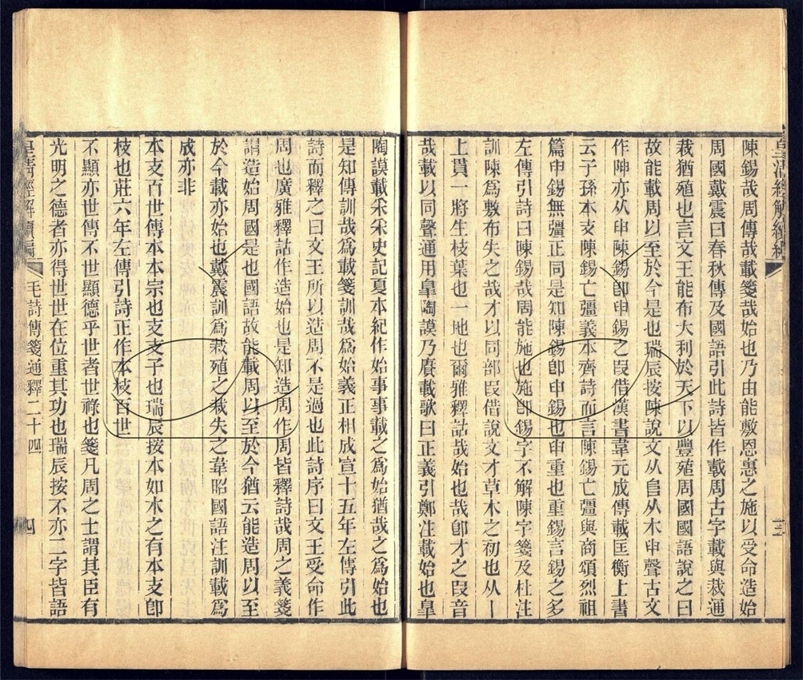 陳錫哉周傳哉載箋哉始也乃由能敷恩惠之施以受命造始
周國戴震曰春秋傳及國語引此詩皆作載周古字載與栽通
栽猶殖也言文王能布大利於天下以豐殖周國國語說之曰
故能載周以至於今是也瑞辰按陳說文从𨸏从木申聲古文
作陣亦从申陳錫卽申錫之叚借漢書韋元成傳載匡衡上書
云子孫本支陳錫亡彊義本齊詩而言陳錫亡彊與商頌烈祖
篇申錫無彊正同是知陳錫卽申錫也申重也重錫言錫之多
左傳引詩曰陳錫哉周能施也施卽錫字不解陳字箋及杜注
訓陳爲敷布失之哉才以同部叚借說文才草木之初也从丨
上貫一將生枝葉也一地也爾雅釋詁哉始也哉卽才之叚音
哉載以同聲通用皐陶謨乃賡載歌曰正義引鄭注載始也皐
陶謨載采采史記夏本紀作始事事載之爲始猶哉之爲始也
是知傳訓哉爲載箋訓哉爲始義正相成宣十五年左傳引此
詩而釋之曰文王所以造周不是過也此詩序曰文王受命作
周也廣雅釋詁作造始也是知造周作周皆釋詩哉周之義箋
謂造始周國是也國語故能載周以至於今猶云能造周以至
於今載亦始也戴震訓爲栽殖之栽失之韋昭國語注訓載爲
成亦非
本支百世傳本本宗也支支子也瑞辰按本如木之有本支卽
枝也莊六年左傳引詩正作本枝百世
不顯亦世傳不世顯德乎世者世祿也箋凡周之士謂其臣有
光明之德者亦得世世在位重其功也瑞辰按不亦二字皆語
皇清經解續編
毛詩傳箋通釋二十四
四